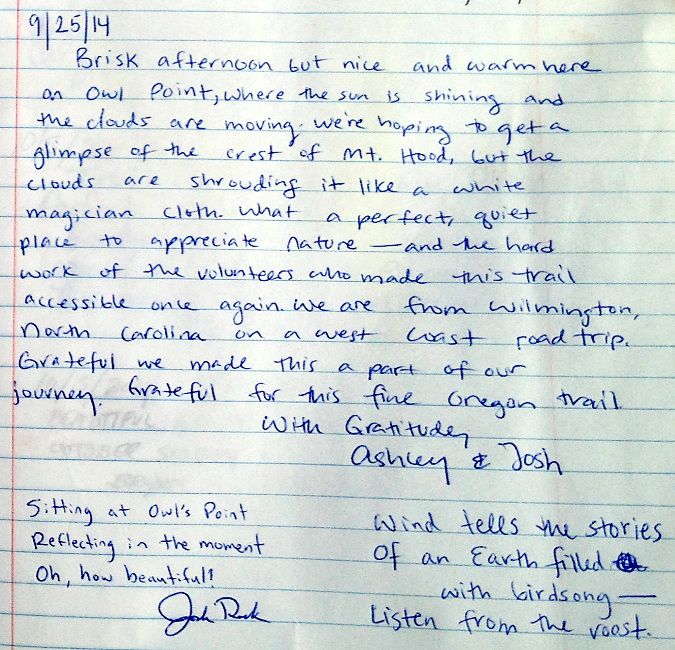 9/25/14
Brisk afternoon but nice and warm here
on Owl Point, where the sun is shining and
the clouds are moving. We're hoping to get a
glimpse of the crest of Mt. Hood, but the
clouds are shrouding it like a white
magician cloth. What a perfect, quiet
place to appreciate nature — and the hard
work of the volunteers who made this trail
accessible once again. We are from Wilmington,
North Carolina on a west coast road trip.
Grateful we made this a part of our
journey. Grateful for this fine Oregon trail.
With Gratitude,
Ashley & Josh
Sitting at Owl's Point
Reflecting in the moment
Oh, how beautiful!
Wind tells the stories
Of an Earth filled
with birdsong —
Listen from the roost.